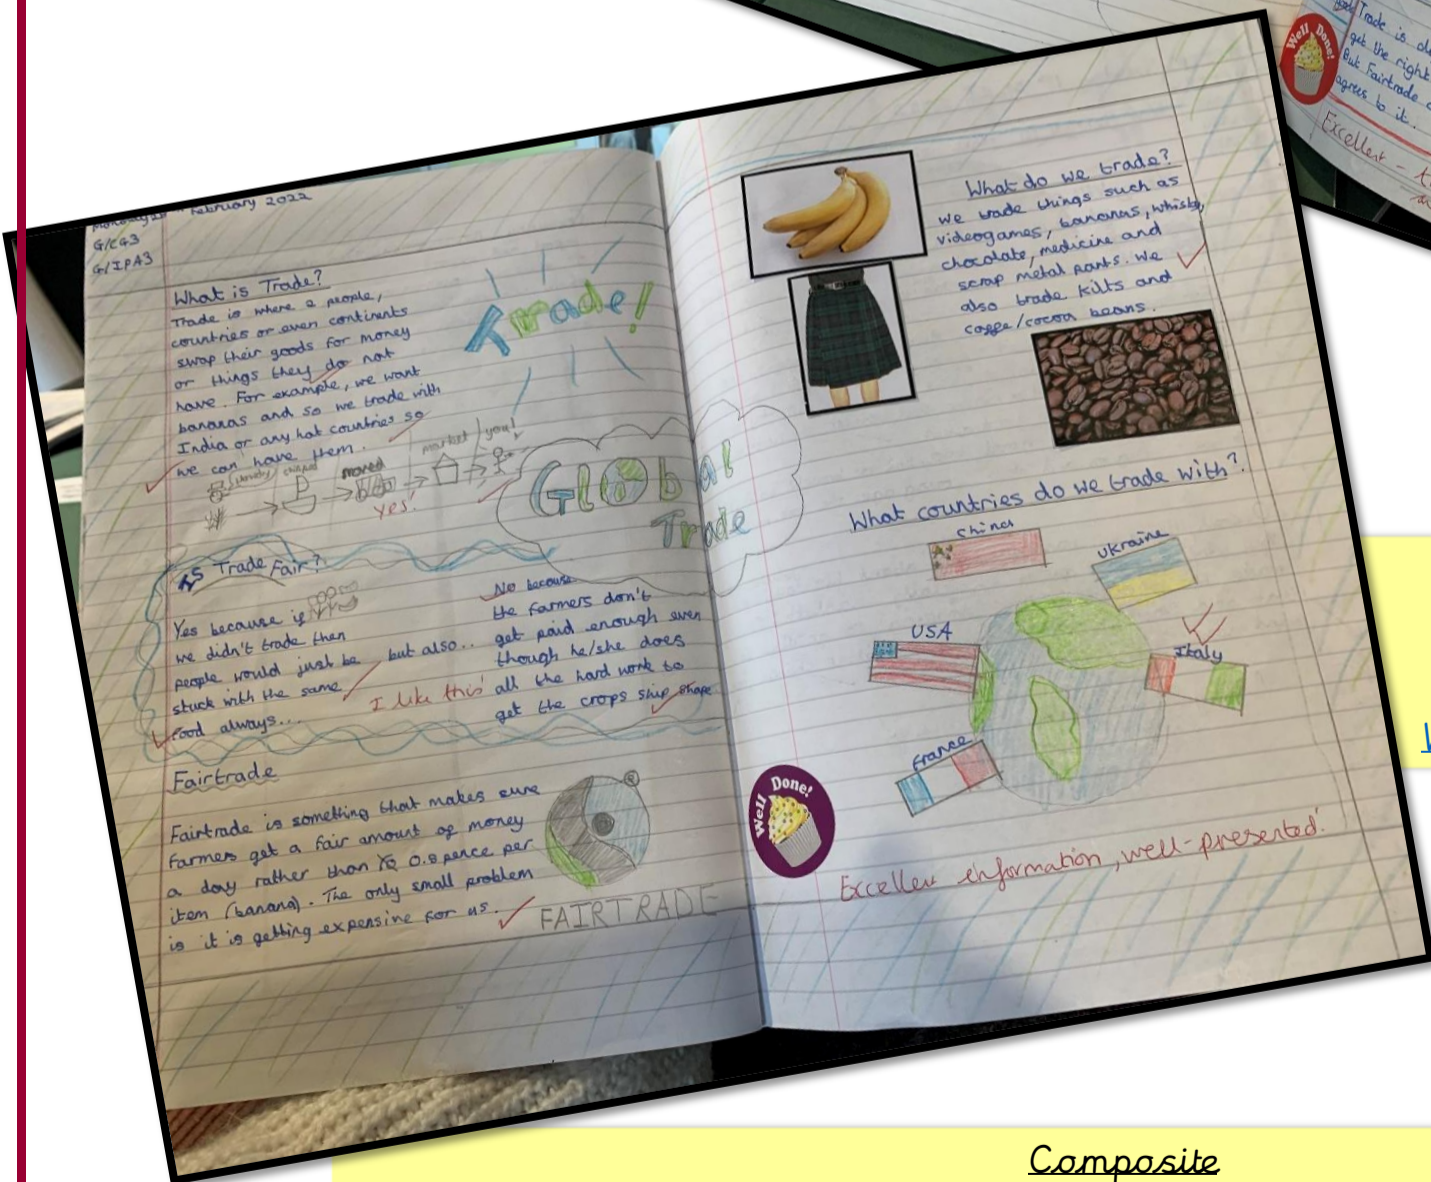 February 2022
G/CG3
G/IPA3
What is Trade?
Trade is where a people,
countries or even continents
swap their goods for money
or things they do not
have. For example, we want
bananas and so we trade with
India or any hot countries so
we can have them.
moved
market
you!
yes!
Trade!
Global
Trade
Is Trade Fair?
Yes because if
we didn't trade then
people would just be
stuck with the same
food always...
but also...
I like this!
No because
the farmers don't
get paid enough even
though he/she does
all the hard work to
get the crops ship shape
Fairtrade
Fairtrade is something that makes sure
farmers get a fair amount of money
a day rather than 0.8 pence per
item (banana). The only small problem
is it is getting expensive for us.
FAIRTRADE
What do we trade?
we trade things such as
videogames, bananas, whisky,
chocolate, medicine and
scrap metal parts. We
also trade kilts and
coffe/cocoa beans.
What countries do we trade with?
China
Ukraine
USA
Italy
France
Well Done!
Excellent information, well-presented!
Well Done!
Trade is
get the right
But Fairtrade
agrees to it.
Excellent -
Composite